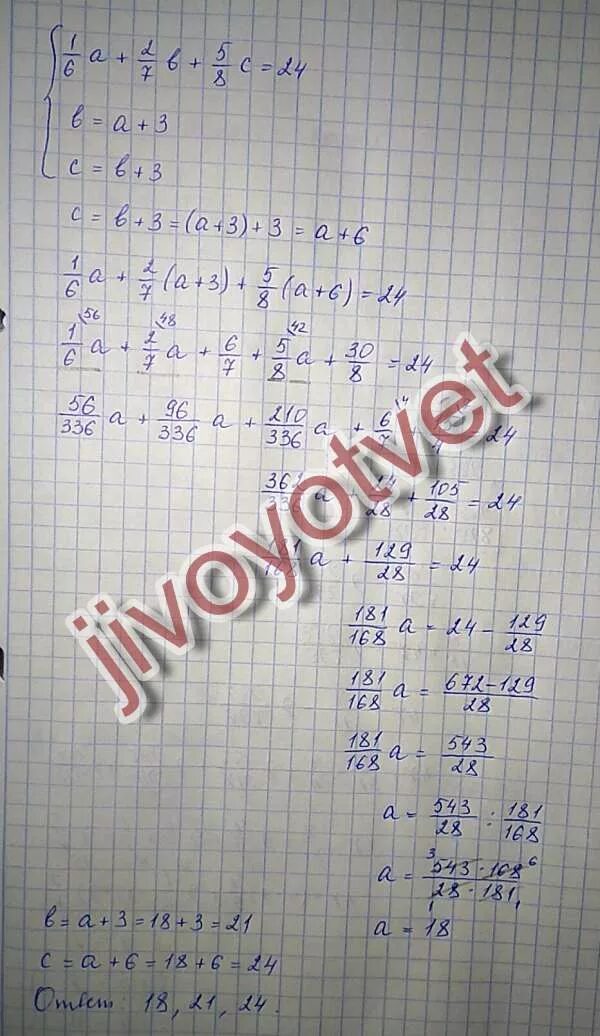 1/6 a + 2/7 в + 5/8 с = 24
в = а + 3
с = в + 3
с = в + 3 = (а + 3) + 3 = а + 6
1/6 a + 2/7 (а + 3) + 5/8 (а + 6) = 24
1/6\56 a + 2/7\48 a + 6/7 + 5/8\42 a + 30/8 = 24
56/336 a + 96/336 a + 210/336 a + 6/7 24
362/336 a + /28 + 105/28 = 24
181/168 a + 129/28 = 24
181/168 a = 24 - 129/28
181/168 a = 672-129/28
181/168 a = 543/28
a = 543/28 : 181/168
a = 543 · 168/28 · 181
a = 18
в = а + 3 = 18 + 3 = 21
с = а + 6 = 18 + 6 = 24
Ответ: 18, 21, 24.
jivoyotvet